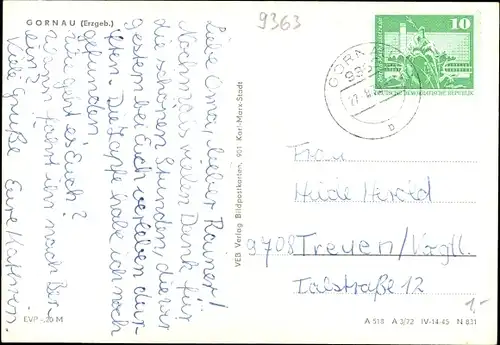 GORNAU (Erzgeb.)
9363
Liebe Oma, lieber Rainer!
Nochmals vielen Dank für
die schönen Stunden, die wir
gestern bei Euch verleben dur-
ften. Die Zapfe habe ich noch
gefunden.
Wie geht es Euch?
Wann fahrt ihr nach Ber-
lin?
Viele Grüße Eure Kathrin.
VEB Verlag Bildpostkarten, 901 Karl-Marx-Stadt
GORNAU
10
DEUTSCHE DEMOKRATISCHE REPUBLIK
b
Frau
Heide Herold
9708 Treuen/Vogtl.
Talstraße 12
1,-
EVP -,20 M
A 518 A 3/72 IV-14-45 N 831